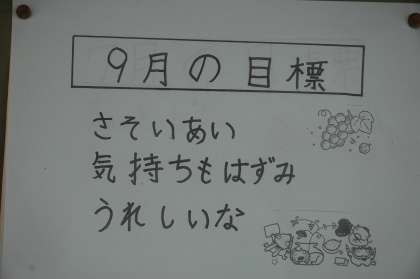 9月の目標
さそいあい
気持ちもはずみ
うれしいな